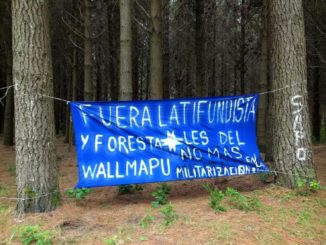 FUERA LATIFUNDISTA
Y FORESTALES DEL
WALLMAPU NO MAS
MILITARIZACION EN EL
SAPO